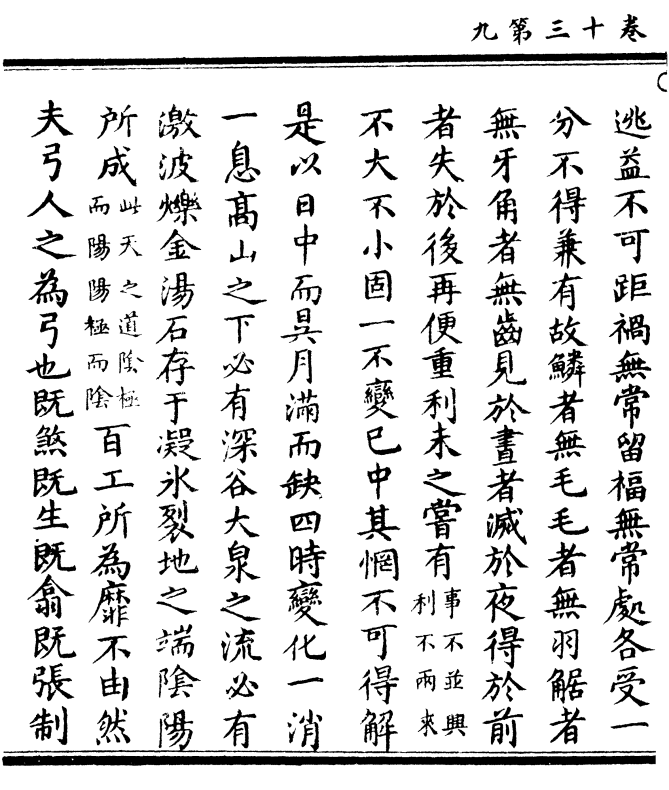 卷十三第九
逃益不可距禍無常留福無常處各受一
分不得兼有故鱗者無毛毛者無羽觡者
無牙角者無齒見於晝者滅於夜得於前
者失於後再便重利未之嘗有事不並興利不兩來
不大不小固一不變巳中其惘不可得解
是以日中而昃月滿而缺四時變化一消
一息髙山之下必有深谷大泉之流必有
激波爍金湯石存于凝氷裂地之端陰陽
所成此天之道陰極而陽陽極而陰百工所為靡不由然
夫弓人之為弓也既煞既生既翕既張制